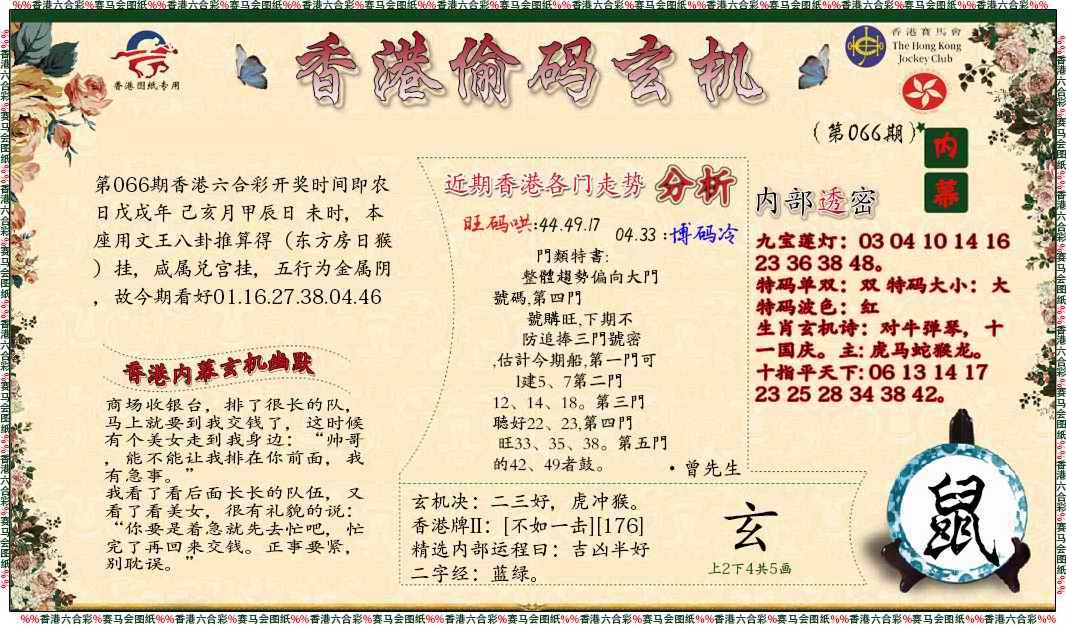 %%香港六合彩%赛马会图纸%%香港六合彩%赛马会图纸%%香港六合彩%赛马会图纸%%香港六合彩%赛马会图纸%%香港六合彩%赛马会图纸%%香港六合彩%赛马会图纸%%香港六合彩%%
香港图纸专用
香港偷码玄机
香港賽馬會
The Hong Kong
Jockey Club
(第066期)
内幕
第066期香港六合彩开奖时间即农
日戊戌年 己亥月甲辰日 未时，本
座用文王八卦推算得（东方房日猴
）挂，咸属兑宫挂，五行为金属阴
，故今期看好01.16.27.38.04.46
香港内幕玄机幽默
商场收银台，排了很长的队，
马上就要到我交钱了，这时候
有个美女走到我身边：“帅哥
，能不能让我排在你前面，我
有急事。”
我看了看后面长长的队伍，又
看了看美女，很有礼貌的说：
“你要是着急就先去忙吧，忙
完了再回来交钱。正事要紧，
别耽误。”
近期香港各门走势 分析
旺码哄:44.49.17
04.33 :博码冷
門類特書:
整體趨勢偏向大門
號碼,第四門
號購旺,下期不
防追捧三門號密
,估計今期船,第一門可
1建5、7第二門
12、14、18。第三門
聽好22、23,第四門
旺33、35、38。第五門
的42、49者鼓。
·曾先生
内部透密
九宝莲灯：03 04 10 14 16
23 36 38 48。
特码单双：双 特码大小：大
特码波色：红
生肖玄机诗：对牛弹琴，十
一国庆。主: 虎马蛇猴龙。
十指平天下: 06 13 14 17
23 25 28 34 38 42。
玄机决：二三好，虎冲猴。
香港牌II：[不如一击][176]
精选内部运程曰：吉凶半好
二字经：蓝绿。
玄
上2下4共5画
鼠
%%香港六合彩%赛马会图纸%%香港六合彩%赛马会图纸%%香港六合彩%赛马会图纸%%香港六合彩%赛马会图纸%%香港六合彩%赛马会图纸%%香港六合彩%赛马会图纸%%香港六合彩%%